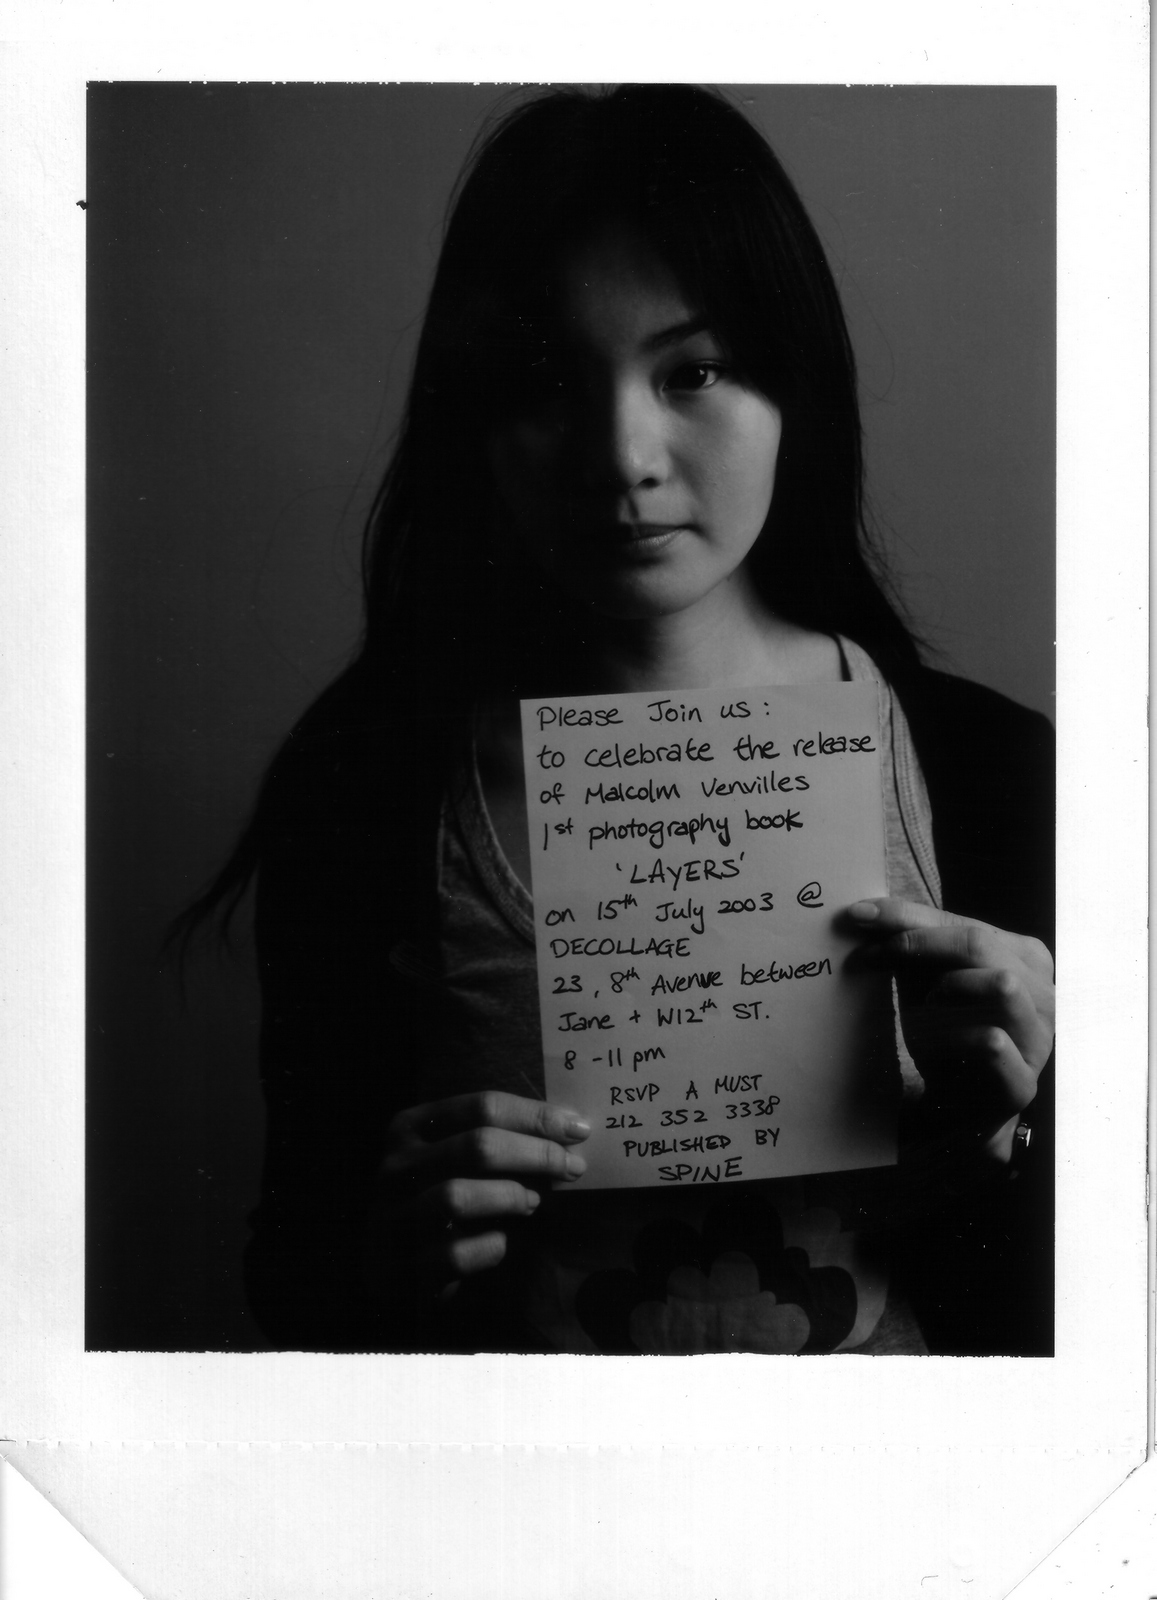 Please Join us :
to celebrate the release
of Malcolm Venvilles
1st photography book
'LAYERS'
on 15th July 2003 @
DECOLLAGE
23, 8th Avenue between
Jane + W12th ST.
8 - 11 pm
RSVP A MUST
212 352 3338
PUBLISHED BY
SPINE